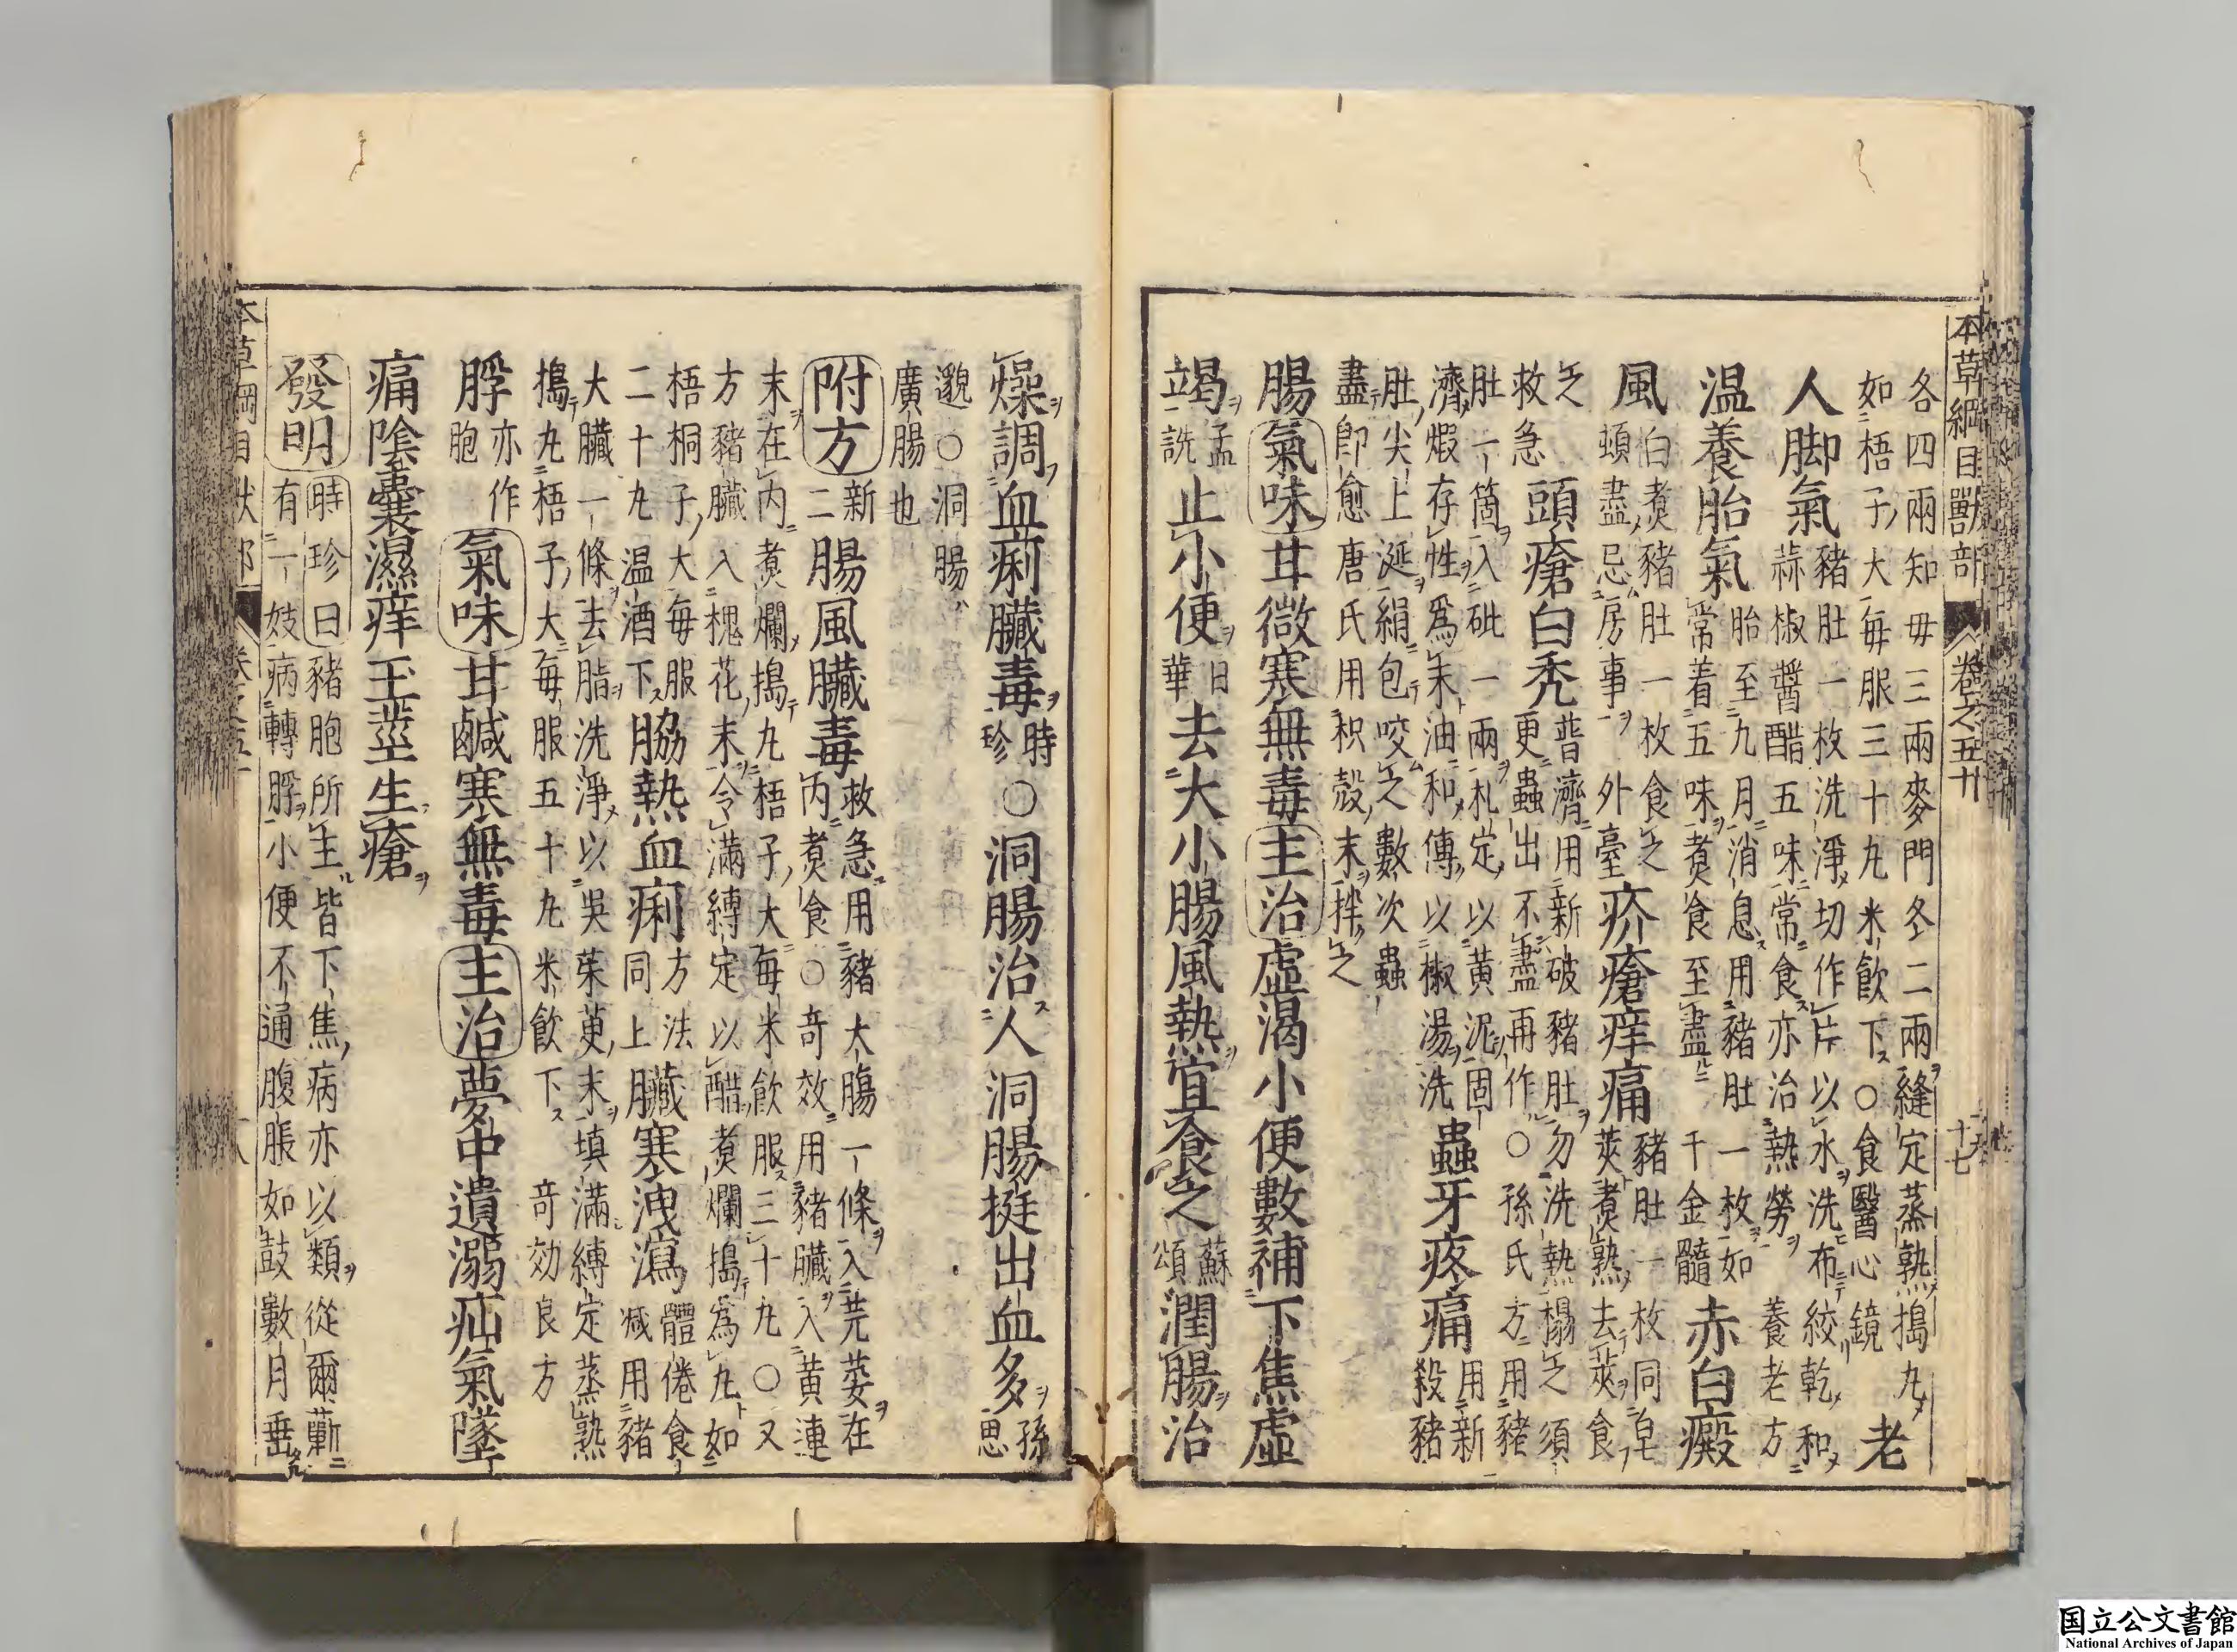 本草綱目獸部 卷之五十 十七
各四兩知毋三兩麥門冬二兩縫定蒸熟搗丸
如梧子大每服三十丸米飲下○食醫心鏡
老
人脚氣
豬肚一枚洗淨切作片以水洗布絞乾和
蒜椒醬醋五味常食亦治熱勞 養老方
温養胎氣
胎至九月消息用豬肚一枚如
常着五味煑食至盡千金髓
赤白癜
風
白煑豬肚一枚食之
頓盡忌房事 外臺
疥瘡痒痛
豬肚一枚同皂
莢煑熟去莢食
之
救急
頭瘡白禿
普濟用新破豬肚勿洗熱榻之須
更蟲出不盡再作○孫氏方用豬
肚一箇入砒一兩札定以黄泥固
濟煅存性爲末油和傳以椒湯洗
蟲牙疼痛
用新
殺豬
肚尖上涎絹包咬之數次蟲
盡卽愈唐氏用枳殼末拌之
腸氣味甘微寒無毒主治虛渴小便數補下焦虛
竭
孟
詵
止小便
日
華
去大小腸風熱宜食之
蘇
頌
潤腸治
燥調血痢臟毒
時
珍
○洞腸治人洞腸挺出血多
孫
思
邈○洞腸
廣腸也
附方
新
二
腸風臟毒
救急用豬大腸一條入芫荽在
內煑食○竒效用豬臟入黄連
末在內煑爛搗丸梧子大每米飲服三十丸○又
方豬臟入槐花末令滿縛定以醋煑爛搗爲丸如
梧桐子大每服
二十丸温酒下
脇熱血痢
方法
同上
臟寒洩瀉
體倦食
减用豬
大臟一條去脂洗淨以吳茱萸末填滿縛定蒸熟
搗丸梧子大每服五十丸米飲下 竒効良方
脬
亦作
胞
氣味甘鹹寒無毒主治夢中遺溺疝氣墜
痛陰囊濕痒玉莖生瘡
發明
時珍曰豬胞所主皆下焦病亦以類從爾蘄
有一妓病轉脬小便不通腹脹如鼓數月垂死
本草綱目
国立公文書館
National Archives of Japan